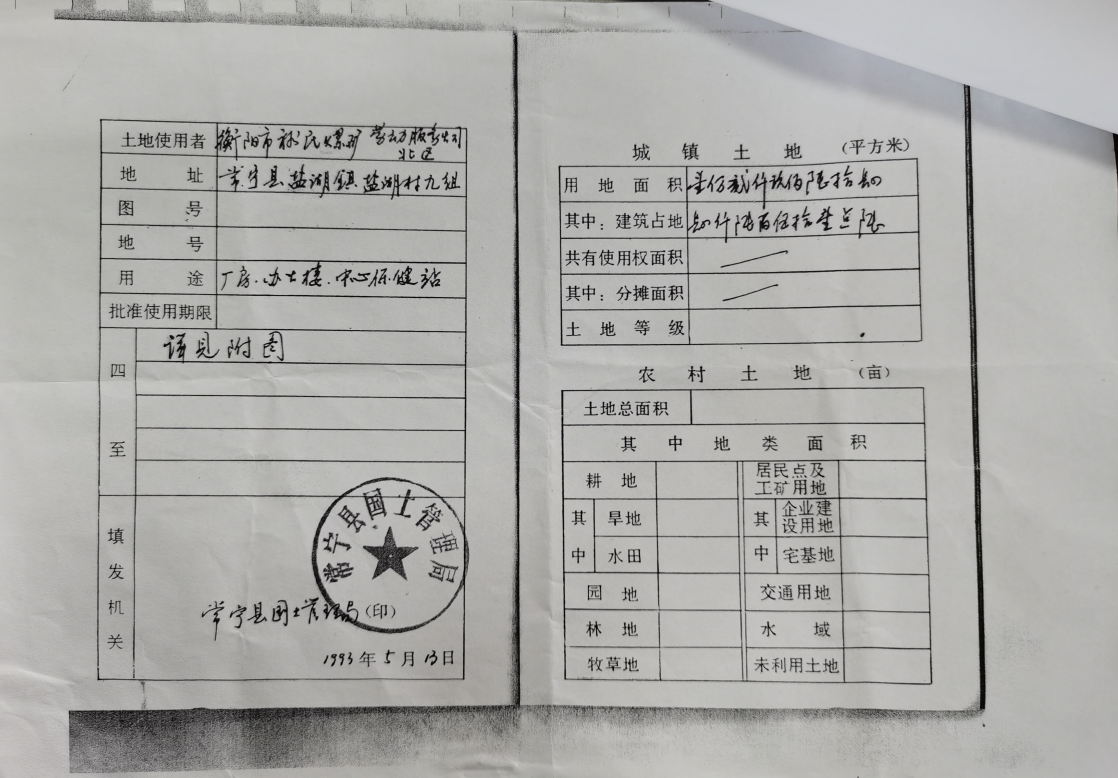 土地使用者 衡阳市裕民煤矿 劳动服务公司
北区
地 址 常宁县盐湖镇盐湖村九组
图 号
地 号
用 途 厂房、办公楼、中心保健站
批准使用期限
四 至 详见附图
填 发 机 关
常宁县国土管理局
常宁县国土管理局(印)
1993年5月13日
城 镇 土 地 (平方米)
用地面积 壹仟贰
其中:建筑占地
共有使用权面积
其中:分摊面积
土 地 等 级
农 村 土 地 (亩)
土地总面积
其 中 地 类 面 积
耕 地 居民点及工矿用地
其 中 旱地 其 中 企业建设用地
水田 宅基地
园 地 交通用地
林 地 水 域
牧草地 未利用土地